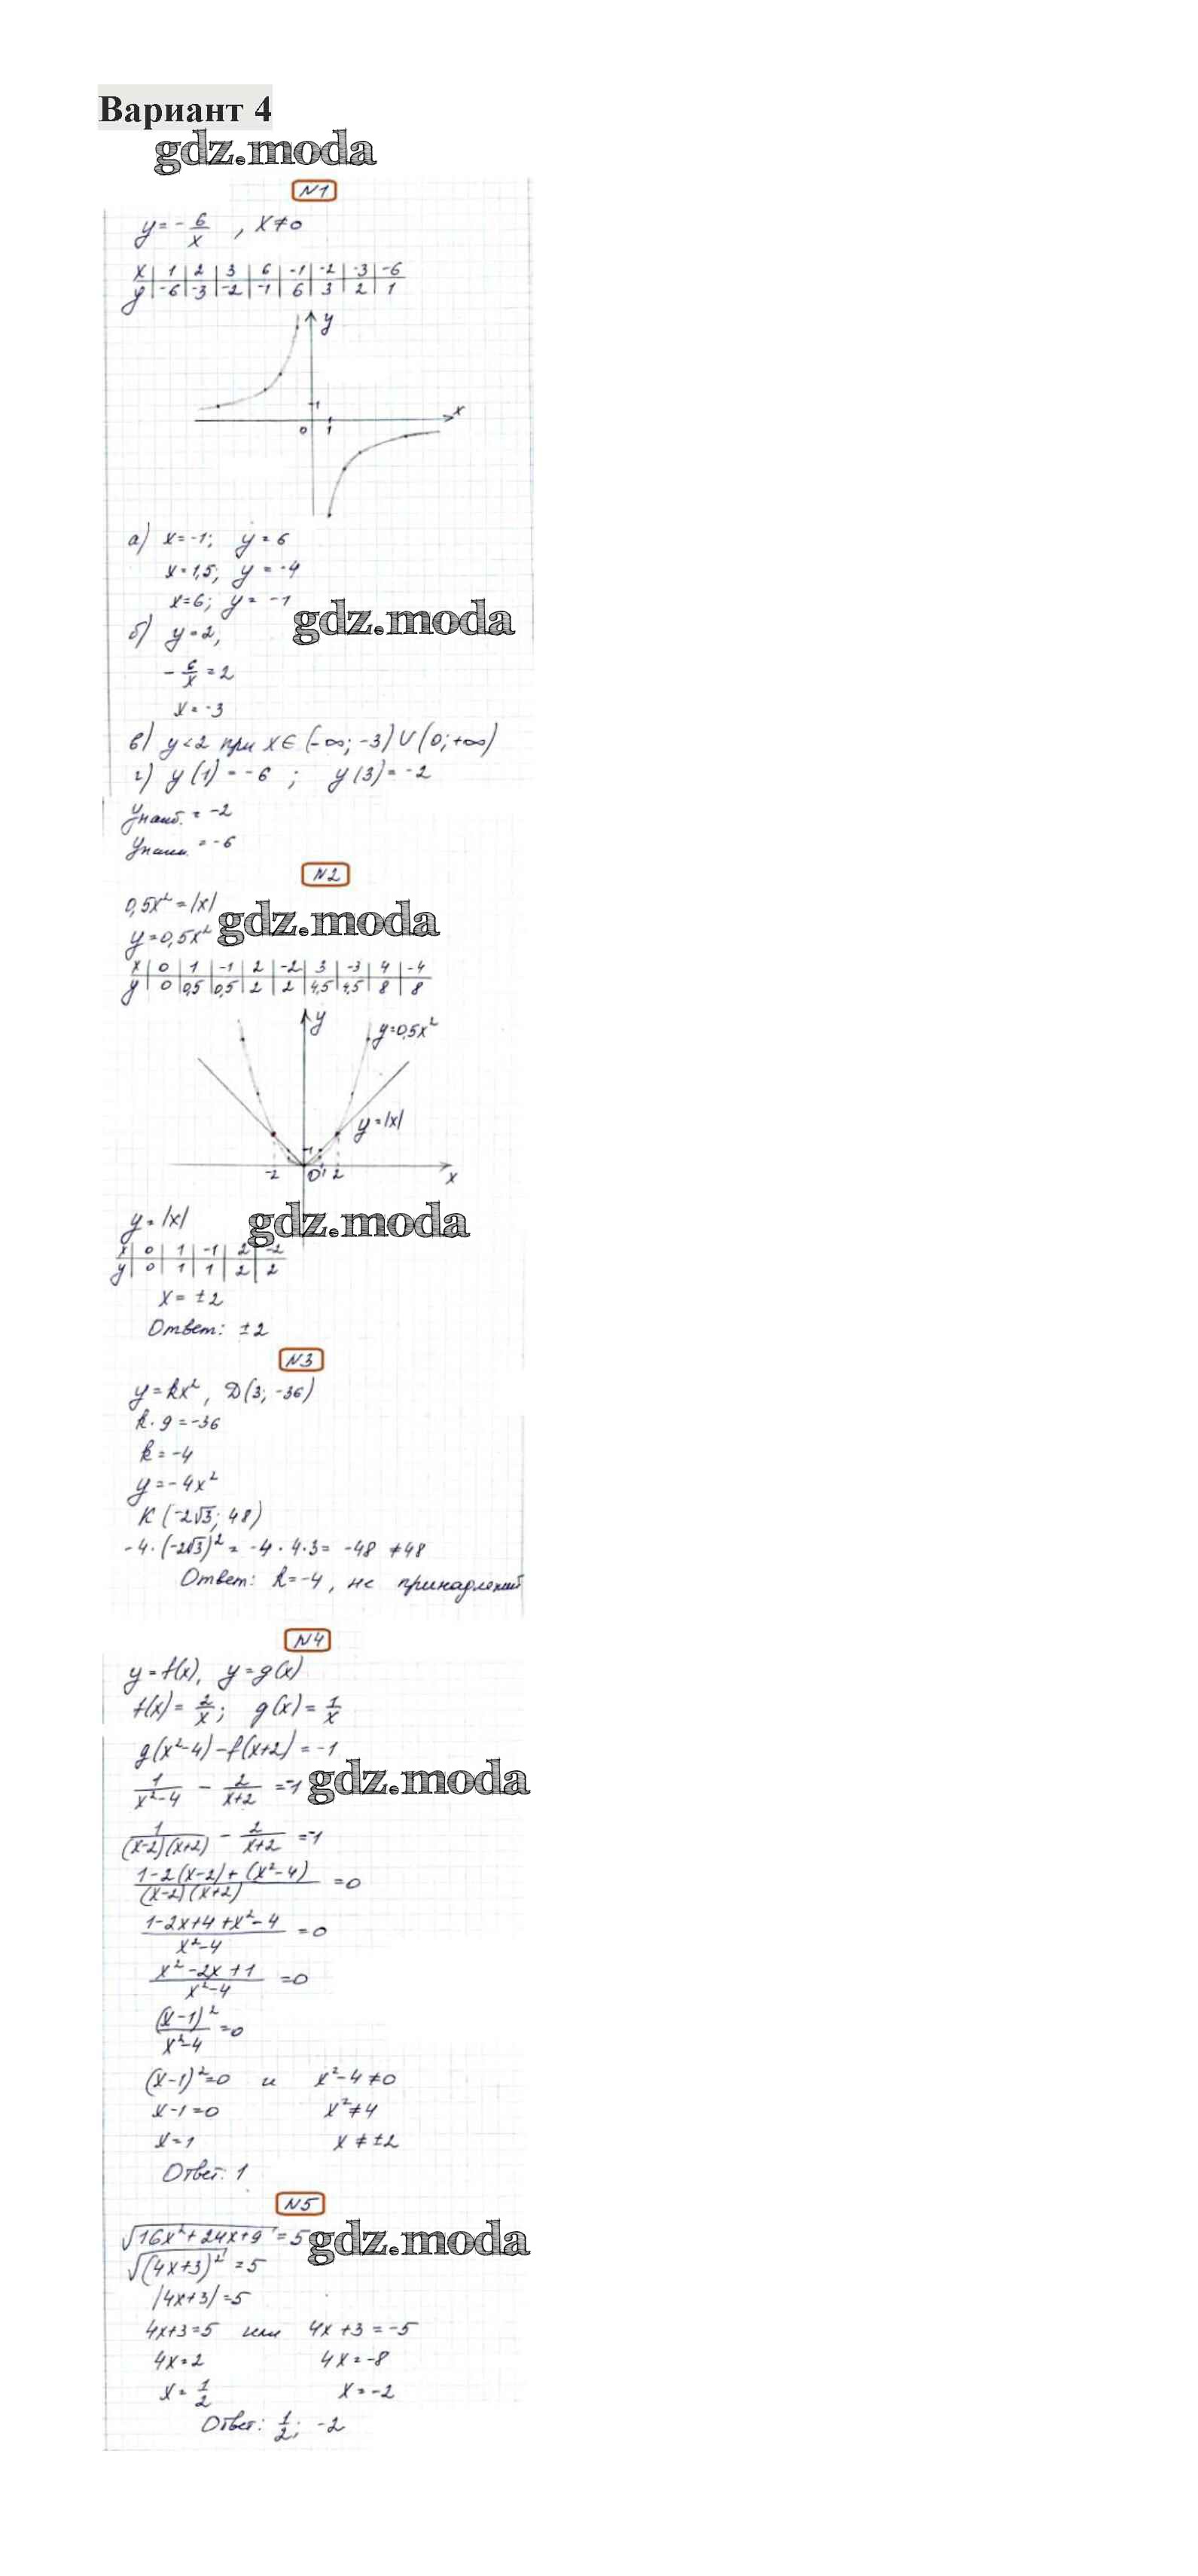 Вариант 4
gdz.moda
N1
y = - 6/x , x ≠ 0
x | 1 | 2 | 3 | 6 | -1 | -2 | -3 | -6
y | -6 | -3 | -2 | -1 | 6 | 3 | 2 | 1
y
1
x
0 1
а) x = -1; y = 6
x = 1,5; y = -4
x = 6; y = -1
gdz.moda
б) y = 2,
- 6/x = 2
x = -3
в) y < 2 при x ∈ (-∞; -3) ∪ (0; +∞)
г) y(1) = -6 ; y(3) = -2
yнаиб. = -2
yнаим. = -6
N2
0,5x² = |x|
gdz.moda
y = 0,5x²
x | 0 | 1 | -1 | 2 | -2 | 3 | -3 | 4 | -4
y | 0 | 0,5 | 0,5 | 2 | 2 | 4,5 | 4,5 | 8 | 8
y
y = 0,5x²
y = |x|
1
-2 0 1 2 x
y = |x|
gdz.moda
x | 0 | 1 | -1 | 2 | -2
y | 0 | 1 | 1 | 2 | 2
x = ±2
Ответ: ±2
N3
y = kx², D(3; -36)
k · 9 = -36
k = -4
y = -4x²
K (-2√3; 48)
-4 · (-2√3)² = -4 · 4 · 3 = -48 ≠ 48
Ответ: k = -4, не принадлежит
N4
y = f(x), y = g(x)
f(x) = 2/x; g(x) = 1/x
g(x²-4) - f(x+2) = -1
1/(x²-4) - 2/(x+2) = -1
gdz.moda
1/((x-2)(x+2)) - 2/(x+2) = -1
(1-2(x-2)+(x²-4))/((x-2)(x+2)) = 0
(1-2x+4+x²-4)/(x²-4) = 0
(x²-2x+1)/(x²-4) = 0
(x-1)²/(x²-4) = 0
(x-1)² = 0 и x²-4 ≠ 0
x-1 = 0 x² ≠ 4
x = 1 x ≠ ±2
Ответ: 1
N5
√(16x²+24x+9) = 5
gdz.moda
√((4x+3)²) = 5
|4x+3| = 5
4x+3 = 5 или 4x+3 = -5
4x = 2 4x = -8
x = 1/2 x = -2
Ответ: 1/2; -2